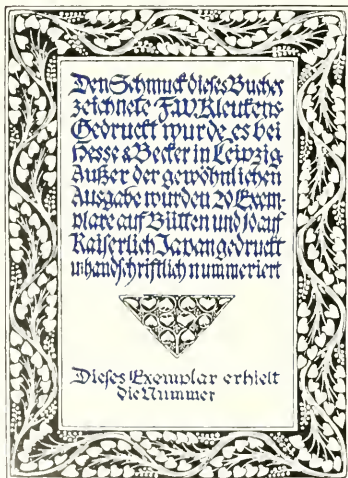 Den Schmuck dieses Buches
zeichnete F.W. Kleukens
Gedruckt wurde es bei
Hesse & Becker in Leipzig
Außer der gewöhnlichen
Ausgabe wurden 20 Exem-
plare auf Bütten und 10 auf
Kaiserlich Japan gedruckt
u. handschriftlich nummeriert
Dieses Exemplar erhielt
die Nummer